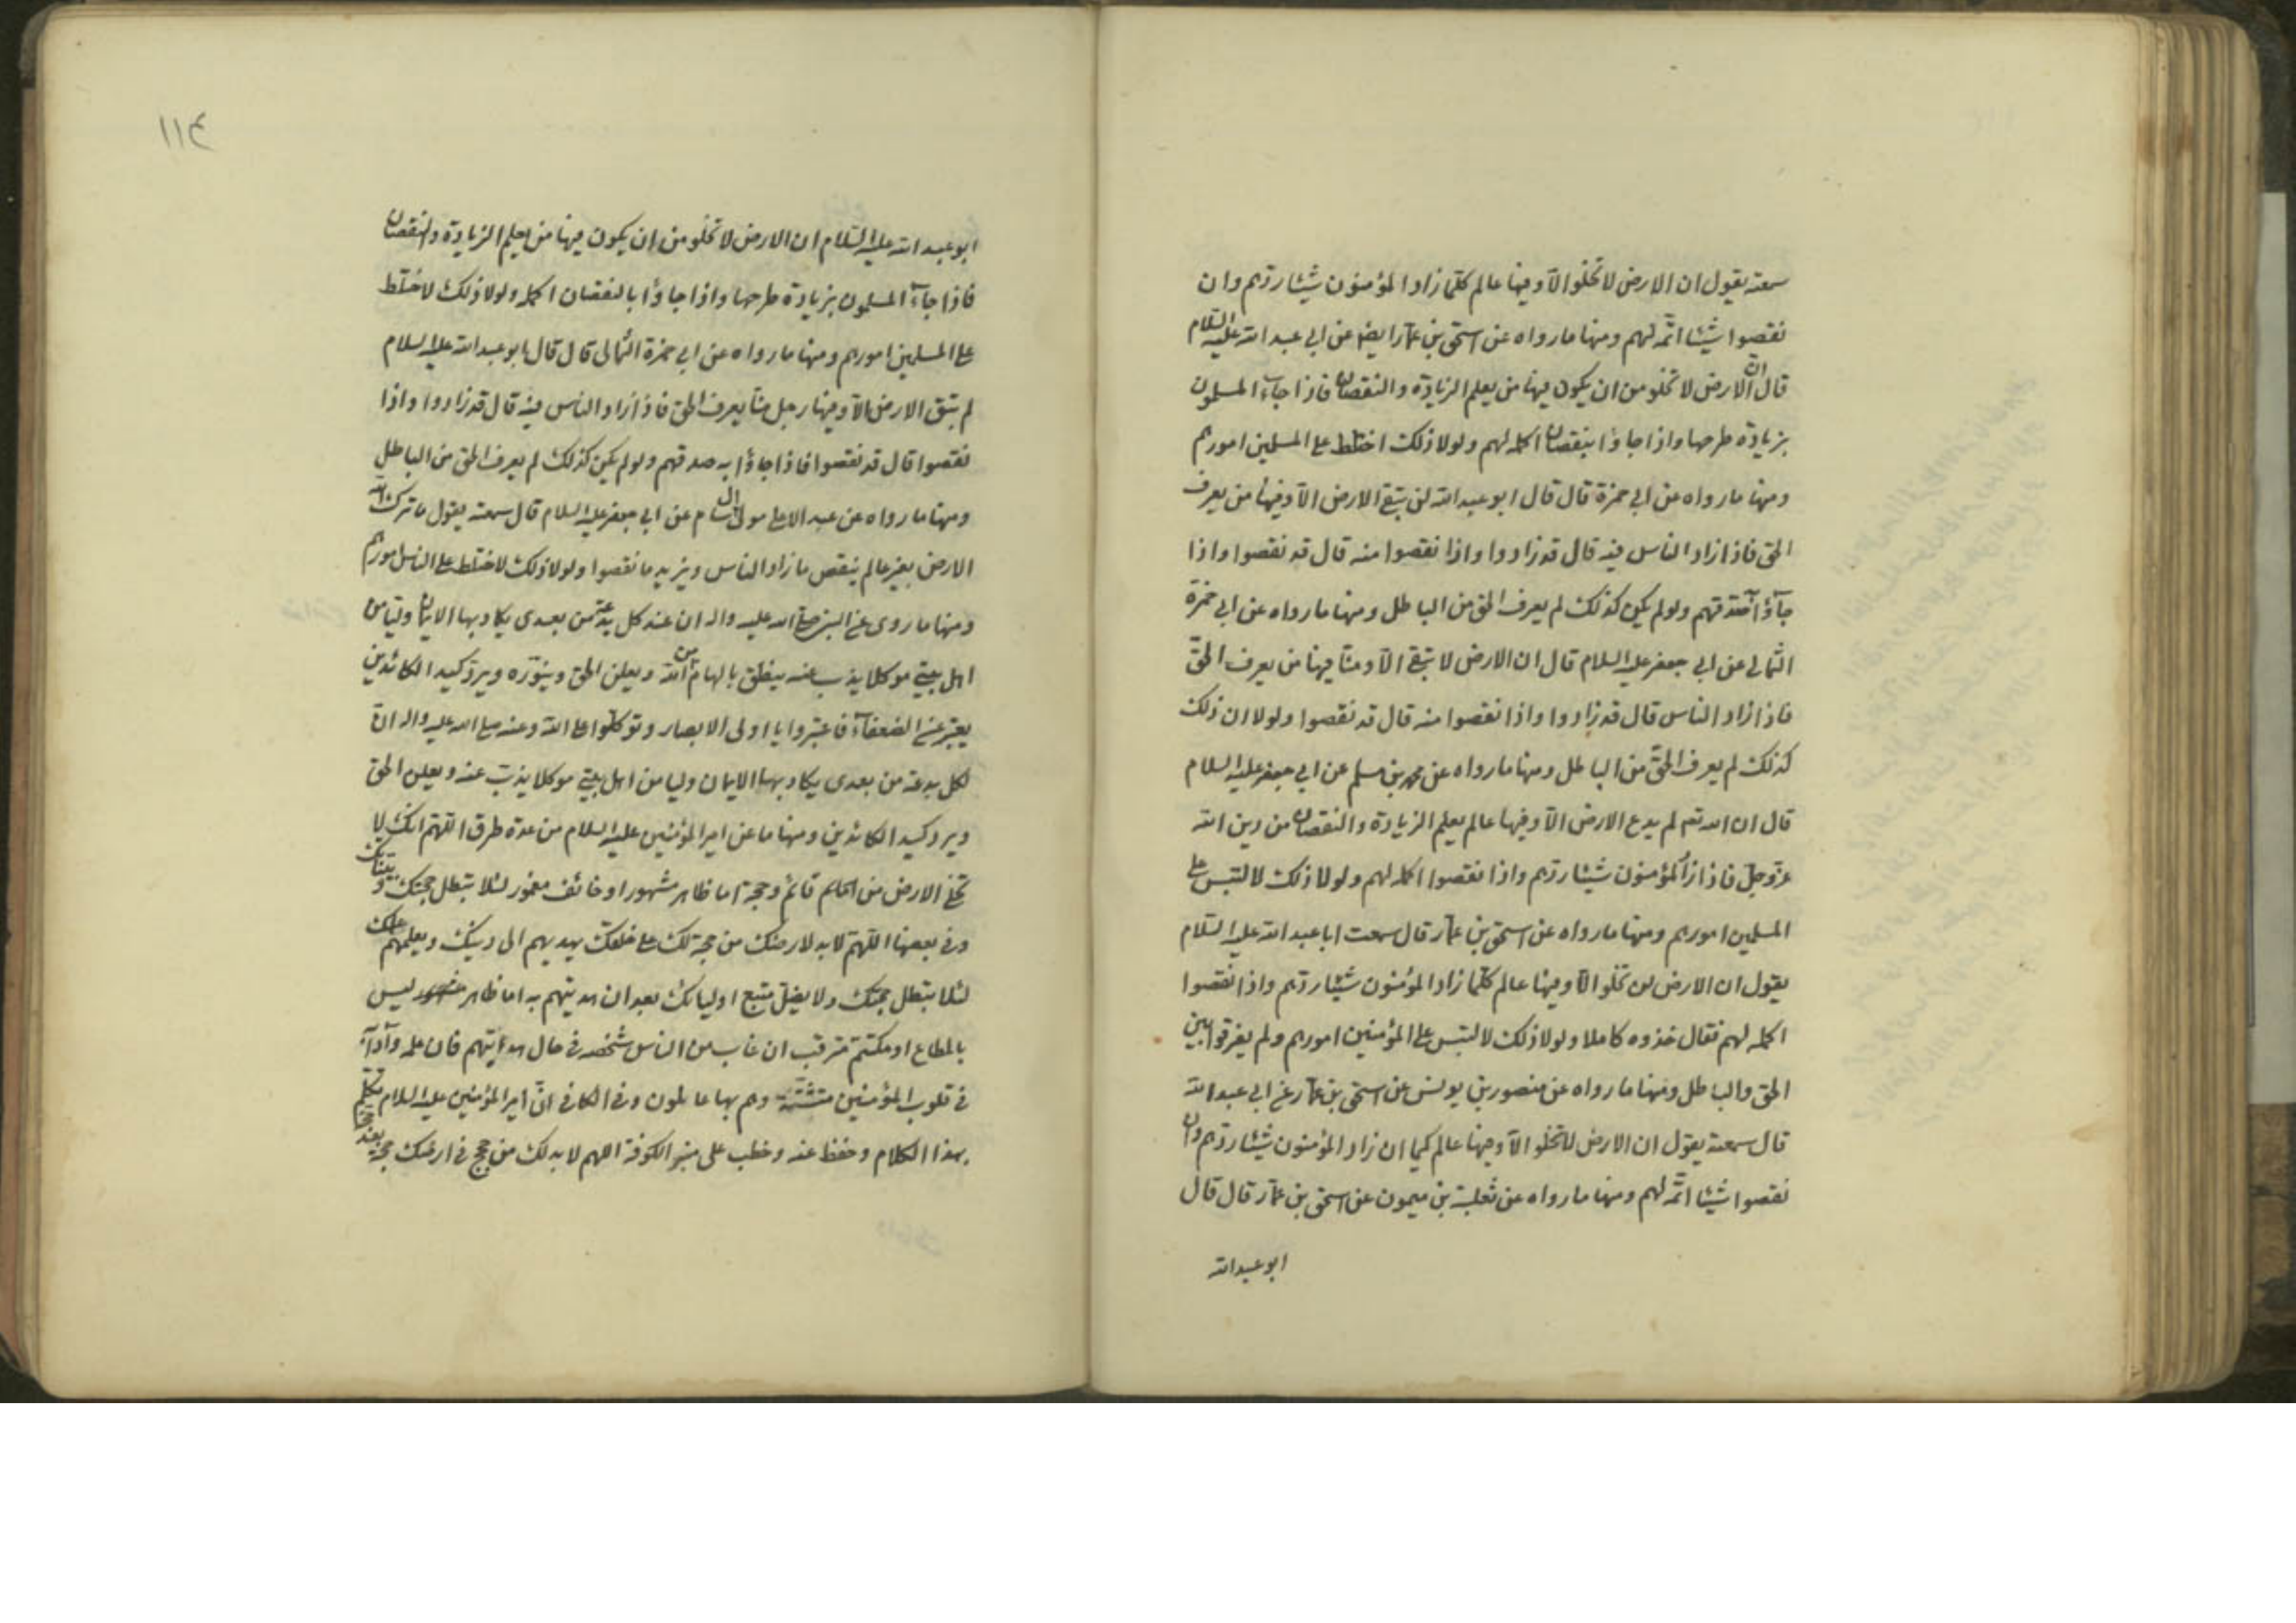 سمعته يقول ان الارض لا تخلو الّا وفيها عالم كلّما زاد المؤمنون شيئا ردّهم وان
نقصوا شيئا اتمّه لهم ومنها ما رواه عن اسحق بن عمّار ايضا عن ابي عبد الله عليه السّلام
قال انّ الارض لا تخلو من ان يكون فيها من يعلم الزيادة والنقصان فاذا جاء المسلمون
بزيادة طرحها واذا جاؤا بنقصان اكمله لهم ولولا ذلك اختلط على المسلمين امورهم
ومنها ما رواه عن ابي حمزة قال قال ابو عبد الله لن تبقى الارض الّا وفيها من يعرف
الحق فاذا زاد الناس فيه قال قد زادوا واذا نقصوا منه قال قد نقصوا واذا
جآؤا به صدّقهم ولو لم يكن كذلك لم يعرف الحق من الباطل ومنها ما رواه عن ابي حمزة
الثمالي عن ابي جعفر عليه السلام قال ان الارض لا تبقى الّا ومنّا فيها من يعرف الحقّ
فاذا زاد الناس قال قد زادوا واذا نقصوا منه قال قد نقصوا ولولا ان ذلك
كذلك لم يعرف الحقّ من الباطل ومنها ما رواه عن محمد بن مسلم عن ابي جعفر عليه السلام
قال ان الله تعم لم يدع الارض الّا وفيها عالم يعلم الزيادة والنقصان من دين الله
عزّ وجلّ فاذا زاد المؤمنون شيئا ردّهم واذا نقصوا اكمله لهم ولولا ذلك لالتبس على
المسلمين امورهم ومنها ما رواه عن اسحق بن عمّار قال سمعت ابا عبد الله عليه السّلام
يقول ان الارض لن تخلو الّا وفيها عالم كلّما زاد المؤمنون شيئا ردّهم واذا نقصوا
اكمله لهم فقال خذوه كاملا ولولا ذلك لالتبس على المؤمنين امورهم ولم يفرقوا بين
الحق والباطل ومنها ما رواه عن منصور بن يونس عن اسحق بن عمّار عن ابي عبد الله
قال سمعته يقول ان الارض لا تخلو الّا وفيها عالم كيما ان زاد المؤمنون شيئا ردّهم وان
نقصوا شيئا اتمّه لهم ومنها ما رواه عن ثعلبة بن ميمون عن اسحق بن عمّار قال قال
ابو عبد الله
١١٤
ابو عبد الله عليه السّلام ان الارض لا تخلو من ان يكون فيها من يعلم الزيادة والنقصان
فاذا جآء المسلمون بزيادة طرحها واذا جاؤا بالنقصان اكمله ولولا ذلك لاختلط
على المسلمين امورهم ومنها ما رواه عن ابي حمزة الثمالى قال قال ابو عبد الله عليه السلام
لم تبق الارض الّا وفيها رجل منّا يعرف الحق فاذا زاد الناس فيه قال قد زادوا واذا
نقصوا قال قد نقصوا فاذا جاؤا به صدقهم ولو لم يكن كذلك لم يعرف الحق من الباطل
ومنها ما رواه عن عبد الاعلى مولى آل سام عن ابي جعفر عليه السلام قال سمعته يقول ما ترك الله
الارض بغير عالم ينقص ما زاد الناس ويزيد ما نقصوا ولولا ذلك لاختلط على الناس امورهم
ومنها ما روى عن النبي صلى الله عليه واله ان عند كل بدعة من بعدى يكاد بها الايمان وليا من
اهل بيتى موكلا يذب عنه ينطق بالهام من الله ويعلن الحق وينوّره ويردّ كيد الكائدين
يعبّر عن الضعفآء فاعتبروا يا اولى الابصار وتوكلوا على الله وعنه صلى الله عليه واله انّ
لكل بدعة من بعدى يكاد بها الايمان وليا من اهل بيتى موكلا يذبّ عنه ويعلن الحق
ويرد كيد الكائدين ومنها ما عن امير المؤمنين عليه السلام من عدة طرق اللّهمّ انك لا
تخلى الارض من قائم وحجة اما ظاهر مشهور او خائف مغمور لئلا تبطل حججك وبيّناتك
وفى بعضها اللّهمّ لابد لارضك من حجة لك على خلقك يهديهم الى دينك ويعلمهم علمك
لئلا تبطل حجتك ولا يضلّ متبع اوليائك بعد ان هديتهم به اما ظاهر ليس
بالمطاع او مكتتم مترقب ان غاب من الناس شخصه فى حال هدايتهم فان علمه وآدابه
فى قلوب المؤمنين مثبتة وهم بها عاملون وفى الكافى انّ امير المؤمنين عليه السلام تكلم
بهذا الكلام وحفظ عنه وخطب على منبر الكوفة اللهم لا بد لك من حجج فى ارضك حجة بعد حجة